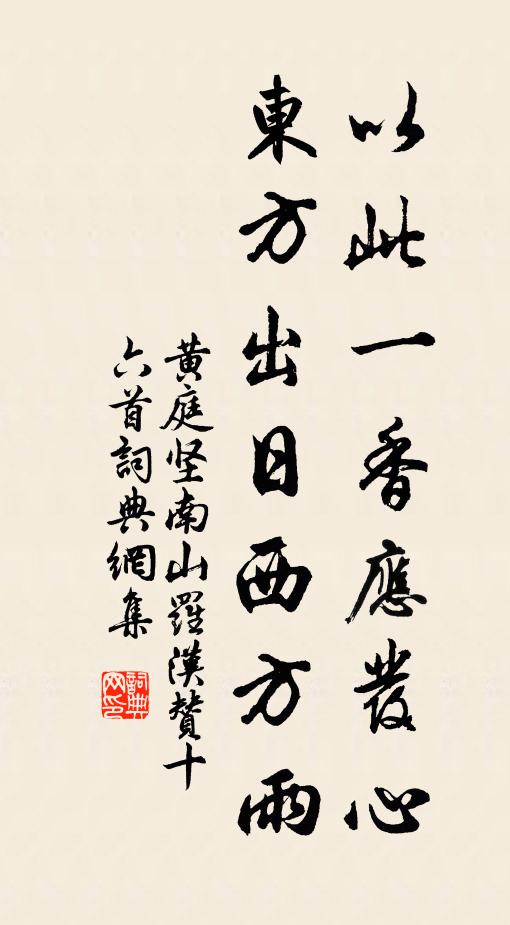 以此一香應發心
東方出日西方雨
黄庭坚南山羅漢贊十
六首詞典網集
詞典网印